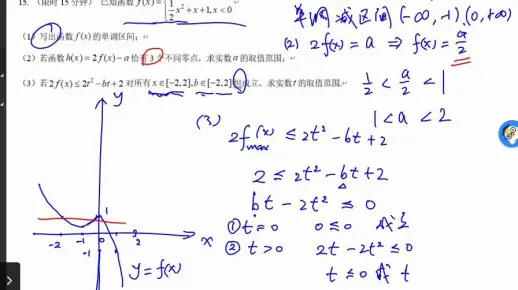 15. (限时 15 分钟) 已知函数 f(x) =
1/2 x² + x + 1, x < 0
(1) 写出函数 f(x) 的单调区间；
(2) 若函数 h(x) = 2f(x) − a 恰有 3 个不同零点，求实数 a 的取值范围；
(3) 若 2f(x) ≤ 2t² − bt + 2 对所有 x∈[−2,2], b∈[−2,2] 恒成立，求实数 t 的取值范围.
单调减区间 (-∞, -1), (0, +∞)
(2) 2f(x) = a ⇒ f(x) = a/2
1/2 < a/2 < 1
1 < a < 2
(3)
2f(x)max ≤ 2t² − bt + 2
2 ≤ 2t² − bt + 2
bt − 2t² ≤ 0
① t = 0 0 ≤ 0 成立
② t > 0 2t − 2t² ≤ 0
t ≤ 0 或 t
y
1
-2 -1 0 2 x
-1
y = f(x)